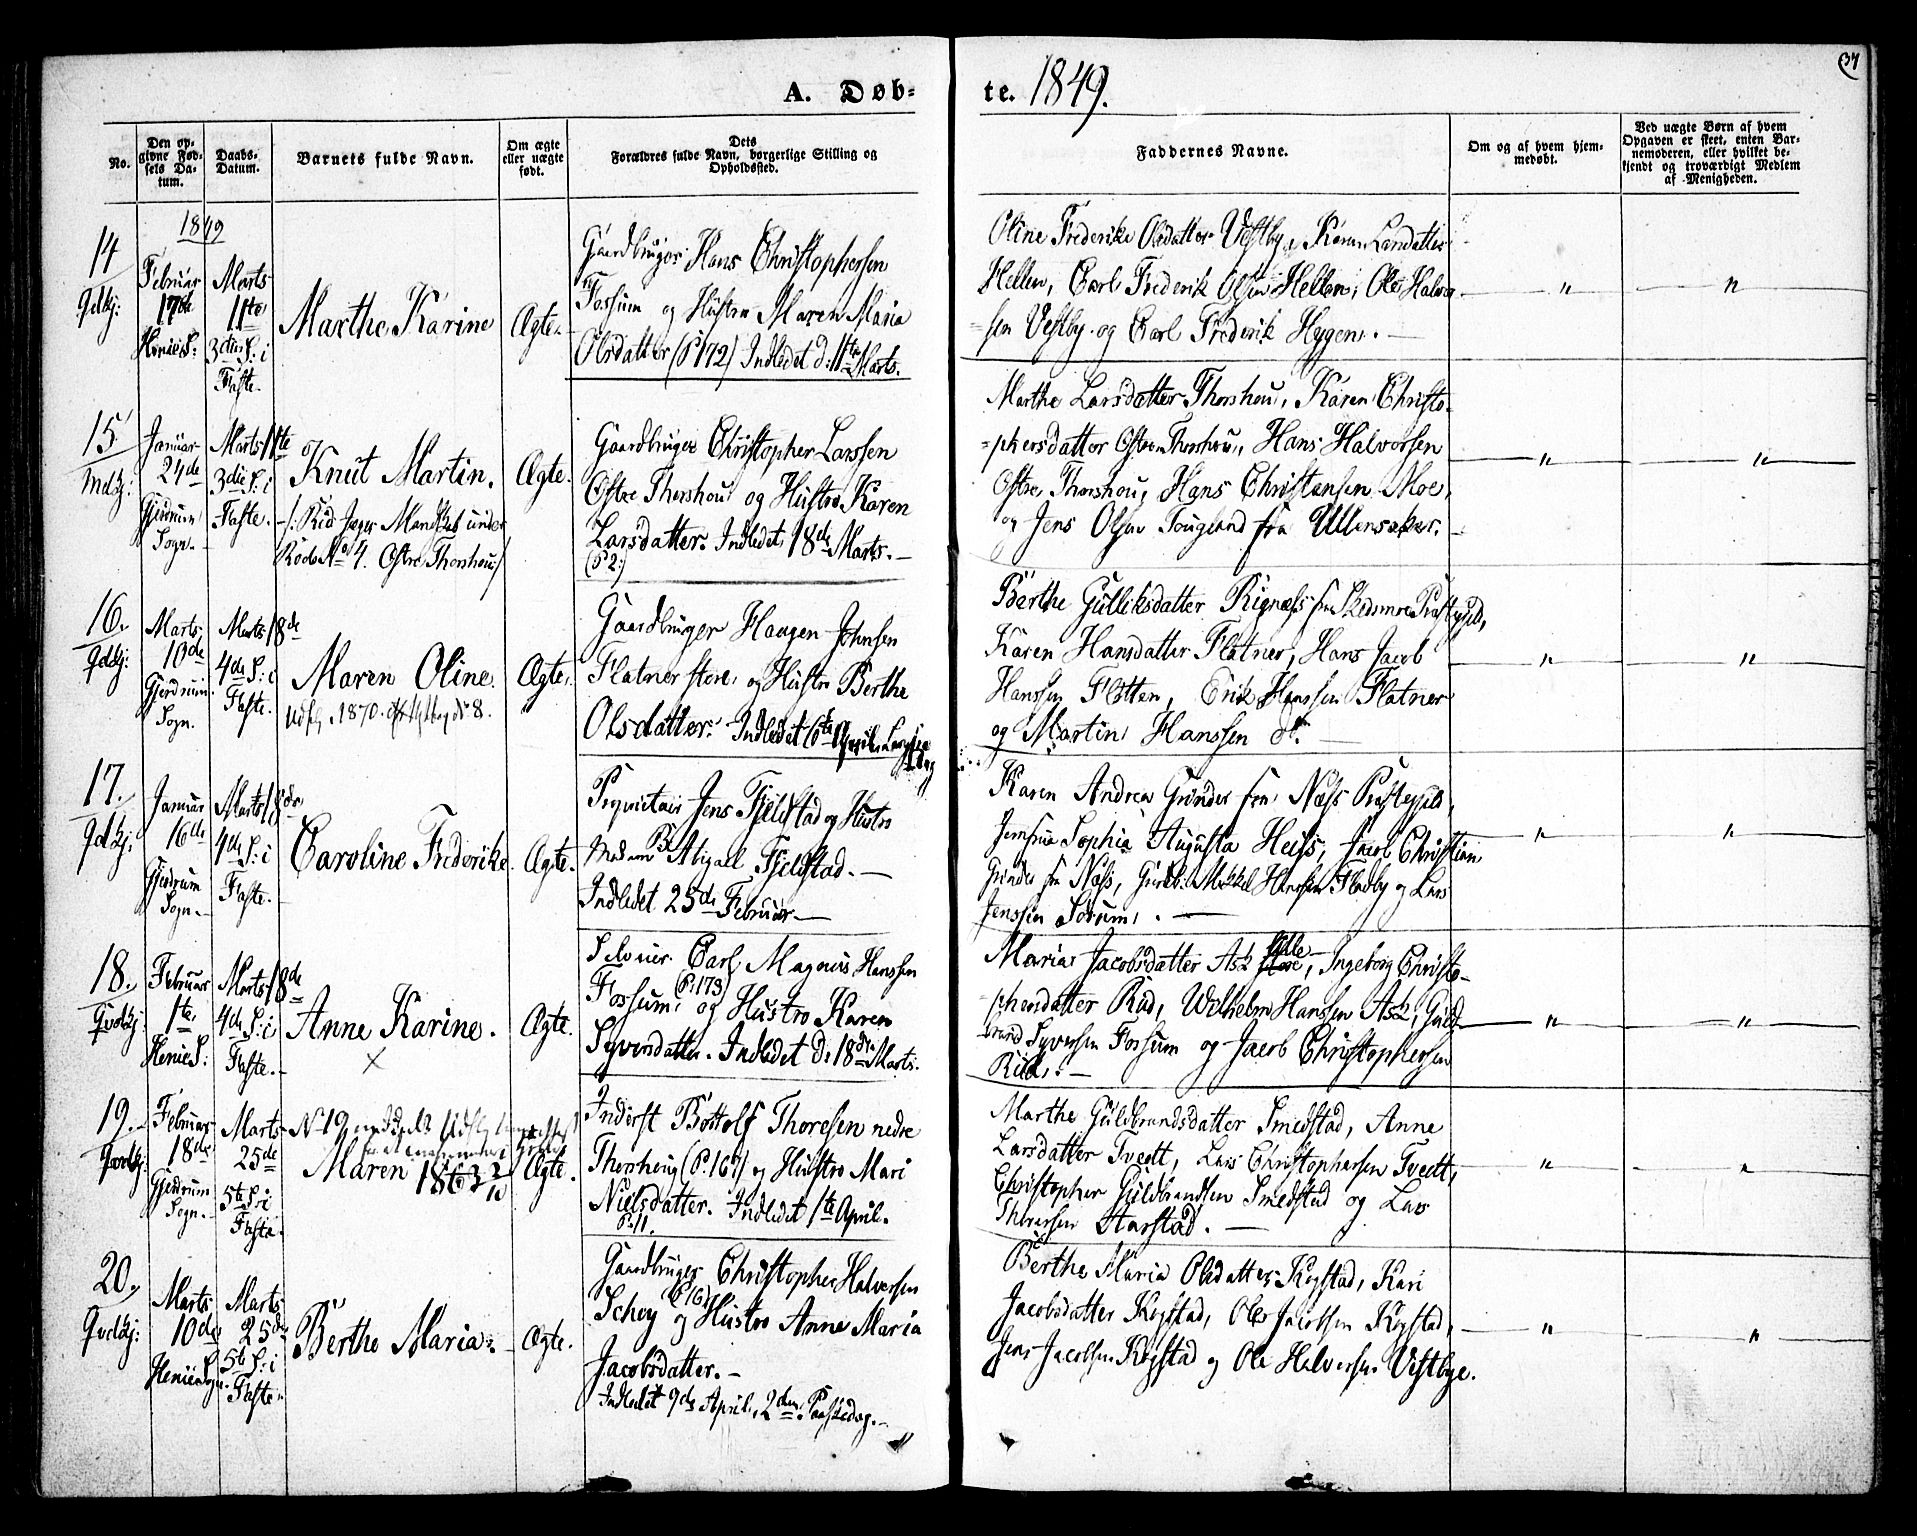 37
A. Døb-
te. 1849.
No.
Den op-
givne Fød-
sels Da-
tum.
Daabs-
Datum.
Barnets fulde Navn.
Om ægte
eller uægte
født.
Dets
Forældres fulde Navn, borgerlige Stilling og
Opholdssted.
Faddernes Navne.
Om og af hvem hjem-
medøbt.
Ved uægte Børn af hvem
Opgaven er skeet, enten Bar-
nemoderen, eller hvilket be-
kjendt og troværdigt Medlem
af Menigheden.
1849
14
Qvdkj:
Februar
17de
Henie S:
Marts
11te
3die S: i
Faste.
Marthe Karine
Ægte.
Gaardbruger Hans Christophersen
Fossum og Hustru Maren Maria
Olsdatter (P. 172) Indledet d: 11te Marts.
Oline Frederike Olsdatter Vestby, Karen Larsdatter
Hellen, Carl Frederik Olsen Hellen, Ole Halvor
=sen Vestby og Carl Frederik Heggen. —
— " —
— " —
15
Mdkj:
Januar
24de
Gjerdrum
Sogn.
Marts 11te
3die S: i
Faste.
Knut Martin.
/: Rid. Jæger Mandskab under
Rode No 4. Østre Thorshoug /
Ægte.
Gaardbruger Christopher Larssen
Østre Thorshoug og Hustru Karen
Larsdatter. Indledet 18de Marts. —
(P. 2:)
Marthe Larsdatter Thorshoug, Karen Christo-
=phersdatter Østre Thorshoug, Hans Halvorsen
Østre Thorshoug, Hans Christensen Moe,
og Jens Olsen Tougland fra Ullensaker. —
— " —
— " —
16.
Qvdkj:
Marts
10de
Gjerdrum
Sogn.
Marts 18de
4de S: i
Faste.
Maren Oline.
Udfl. 1870
Ægte.
Gaardbruger Haagen Johnsen
Flatner store, og Hustru Berthe
Olsdatter. Indledet 6te April, Langfre
dag
Berthe Gulliksdatter Rignæss fra Skedsmoe Præstegjeld,
Karen Hansdatter Flatner, Hans Jacob
Hanssen Flötten, Erik Hanssen Flatner
og Martin Hanssen dt. —
— " —
— " —
17.
Qvdkj:
Januar
16de
Gjerdrum
Sogn. —
Marts 18de
4de S: i
Faste.
Caroline Frederike.
Ægte.
Proprietair Jens Fjeldstad og Hustru
Madam Abigael Fjeldstad. —
Indledet 25de Februar —
Karen Andrea Grinder fra Næss Præstegjeld,
Jomfrue Sophia Augusta Heiss, Jacob Christian
Grinder fra Næss, Gaardb: Mikkel Hanssen Fladby og Lars
Jenssen Sørum. —
— " —
— " —
18.
Qvdkj:
Februar
1te
Henie S:
Marts 18de
4de S: i
Faste. —
Anne Karine.
×
Ægte.
Selveier Carl Magnus Hanssen
Fossum, (P. 173) og Hustru Karen
Syversdatter. Indledet d: 18de Marts.
Maria Jacobsdatter Ask lille, Ingeborg Christo-
=phersdatter Rud, Wilhelm Hanssen Ask, Guld-
brand Syversen Fossum og Jacob Christophersen
Rud. —
— " —
— " —
19.
Qvdkj:
Februar
18de
Gjerdrum
Sogn. —
Marts
25de
5te S: i
Faste.
No 19
Maren 1863
Ægte.
Inderst Bottolf Thoresen nedre
Thorshoug (P. 167) og Hustru Mari
Nielsdatter. Indledet 1te April.
P. 11.
Marthe Guldbrandsdatter Smedstad, Anne
Larsdatter Tvedt, Lars Christophersen Tvedt,
Christopher Guldbrandsen Smedstad og Lars
Thoresen Aarstad. —
— " —
— " —
20.
Qvdkj:
Marts
10de
Henie Sogn.
Marts
25de
5te S: i
Faste.
Berthe Maria.
Ægte.
Gaardbruger Christopher Halversen
Schey og Hustru Anne Maria
Jacobsdatter. —
Indledet 9de April, 2den Paaskedag. —
Berthe Maria Olsdatter Kogstad, Kari
Jacobsdatter Kogstad, Ole Jacobsen Kogstad,
Jens Jacobsen Kogstad og Ole Halversen Vestbye.
— " —
— " —